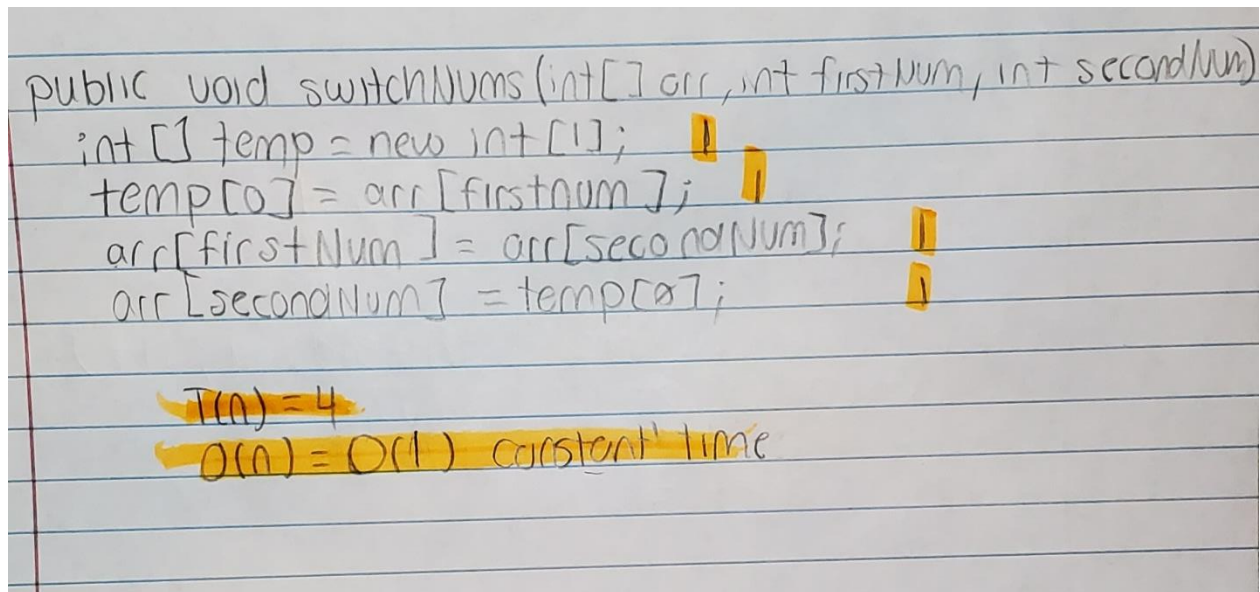 public void switchNums(int[] arr, int firstNum, int secondNum)
int [] temp = new int [1]; 1
temp[0] = arr [firstnum]; 1
arr[firstNum] = arr[secondNum]; 1
arr [secondNum] = temp[0]; 1
T(n) = 4
O(n) = O(1) constant time